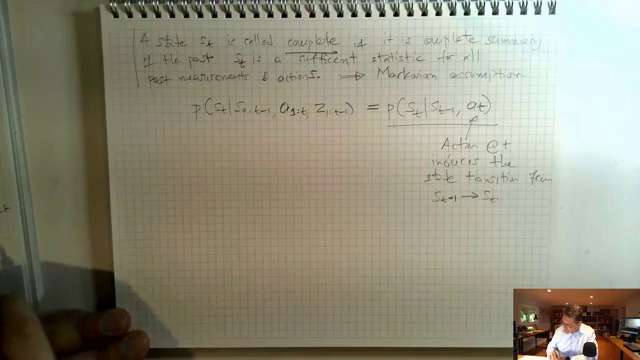 A state St is called complete if it is complete summary
of the past St is a sufficient statistic for all
past measurements & actions. ⟹ Markovian assumption
p(St|S0:t-1, a1:t, Z1:t-1) = p(St|St-1, at)
Action @ t
induces the
state transition from
St-1 → St